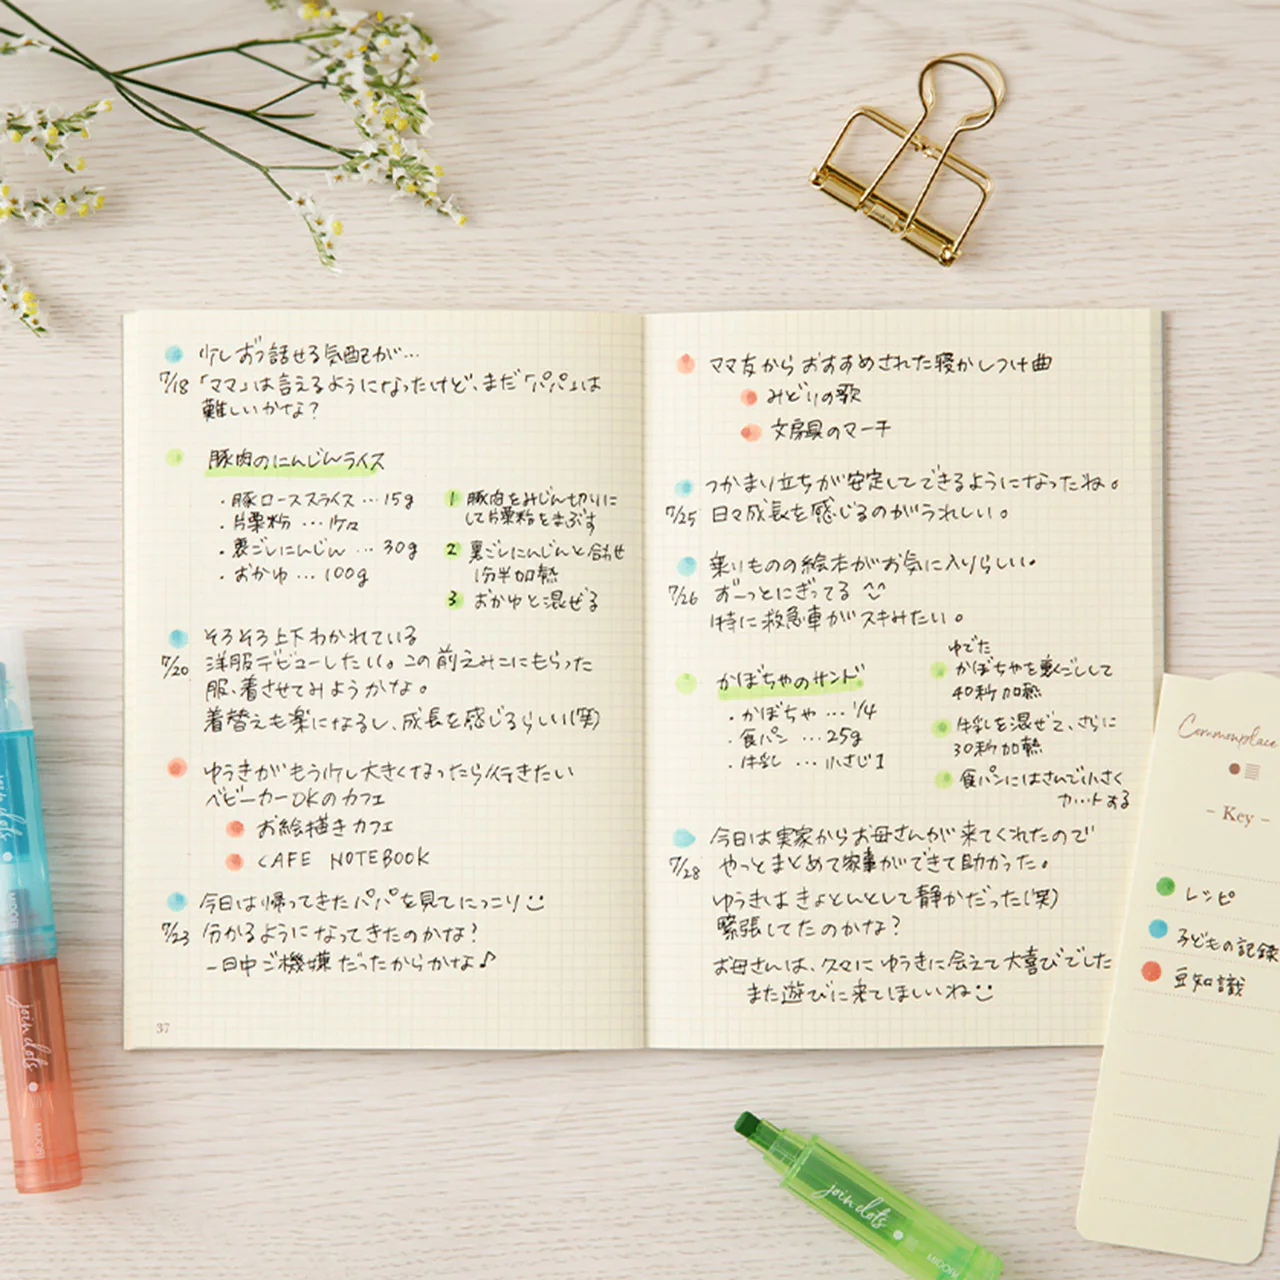 少しずつ話せる気配が…
7/18 「ママ」は言えるようになったけど、まだ「パパ」は
難しいかな？
豚肉のにんじんライス
・豚ローススライス … 15g
・片栗粉 … 少々
・裏ごしにんじん … 30g
・おかゆ … 100g
1 豚肉をみじん切りに
して片栗粉をまぶす
2 裏ごしにんじんと合わせ
1分半加熱
3 おかゆと混ぜる
そろそろ上下わかれている
7/20 洋服デビューしたい。この前えみこにもらった
服、着させてみようかな。
着替えも楽になるし、成長を感じるらしい(笑)
ゆうきがもう少し大きくなったら行きたい
ベビーカーOKのカフェ
お絵描きカフェ
CAFE NOTEBOOK
今日は帰ってきたパパを見てにっこり
7/23 分かるようになってきたのかな？
一日中ご機嫌だったからかな♪
37
ママ友からおすすめされた寝かしつけ曲
みどりの歌
文房具のマーチ
つかまり立ちが安定してできるようになったね。
7/25 日々成長を感じるのがうれしい。
乗りものの絵本がお気に入りらしい。
7/26 ずーっとにぎってる ^^
特に救急車がスキみたい。
かぼちゃのサンド
・かぼちゃ … 1/4
・食パン … 25g
・牛乳 … 小さじ1
ゆでた
かぼちゃを裏ごしして
40秒加熱
牛乳を混ぜて、さらに
30秒加熱
食パンにはさんで小さく
カットする
今日は実家からお母さんが来てくれたので
7/28 やっとまとめて家事ができて助かった。
ゆうきはきょとんとして静かだった(笑)
緊張してたのかな？
お母さんは、久々にゆうきに会えて大喜びでした
また遊びに来てほしいね
Commonplace
- Key -
レシピ
子どもの記録
豆知識
join dots
MIDORI
join dots
MIDORI
join dots
MIDORI